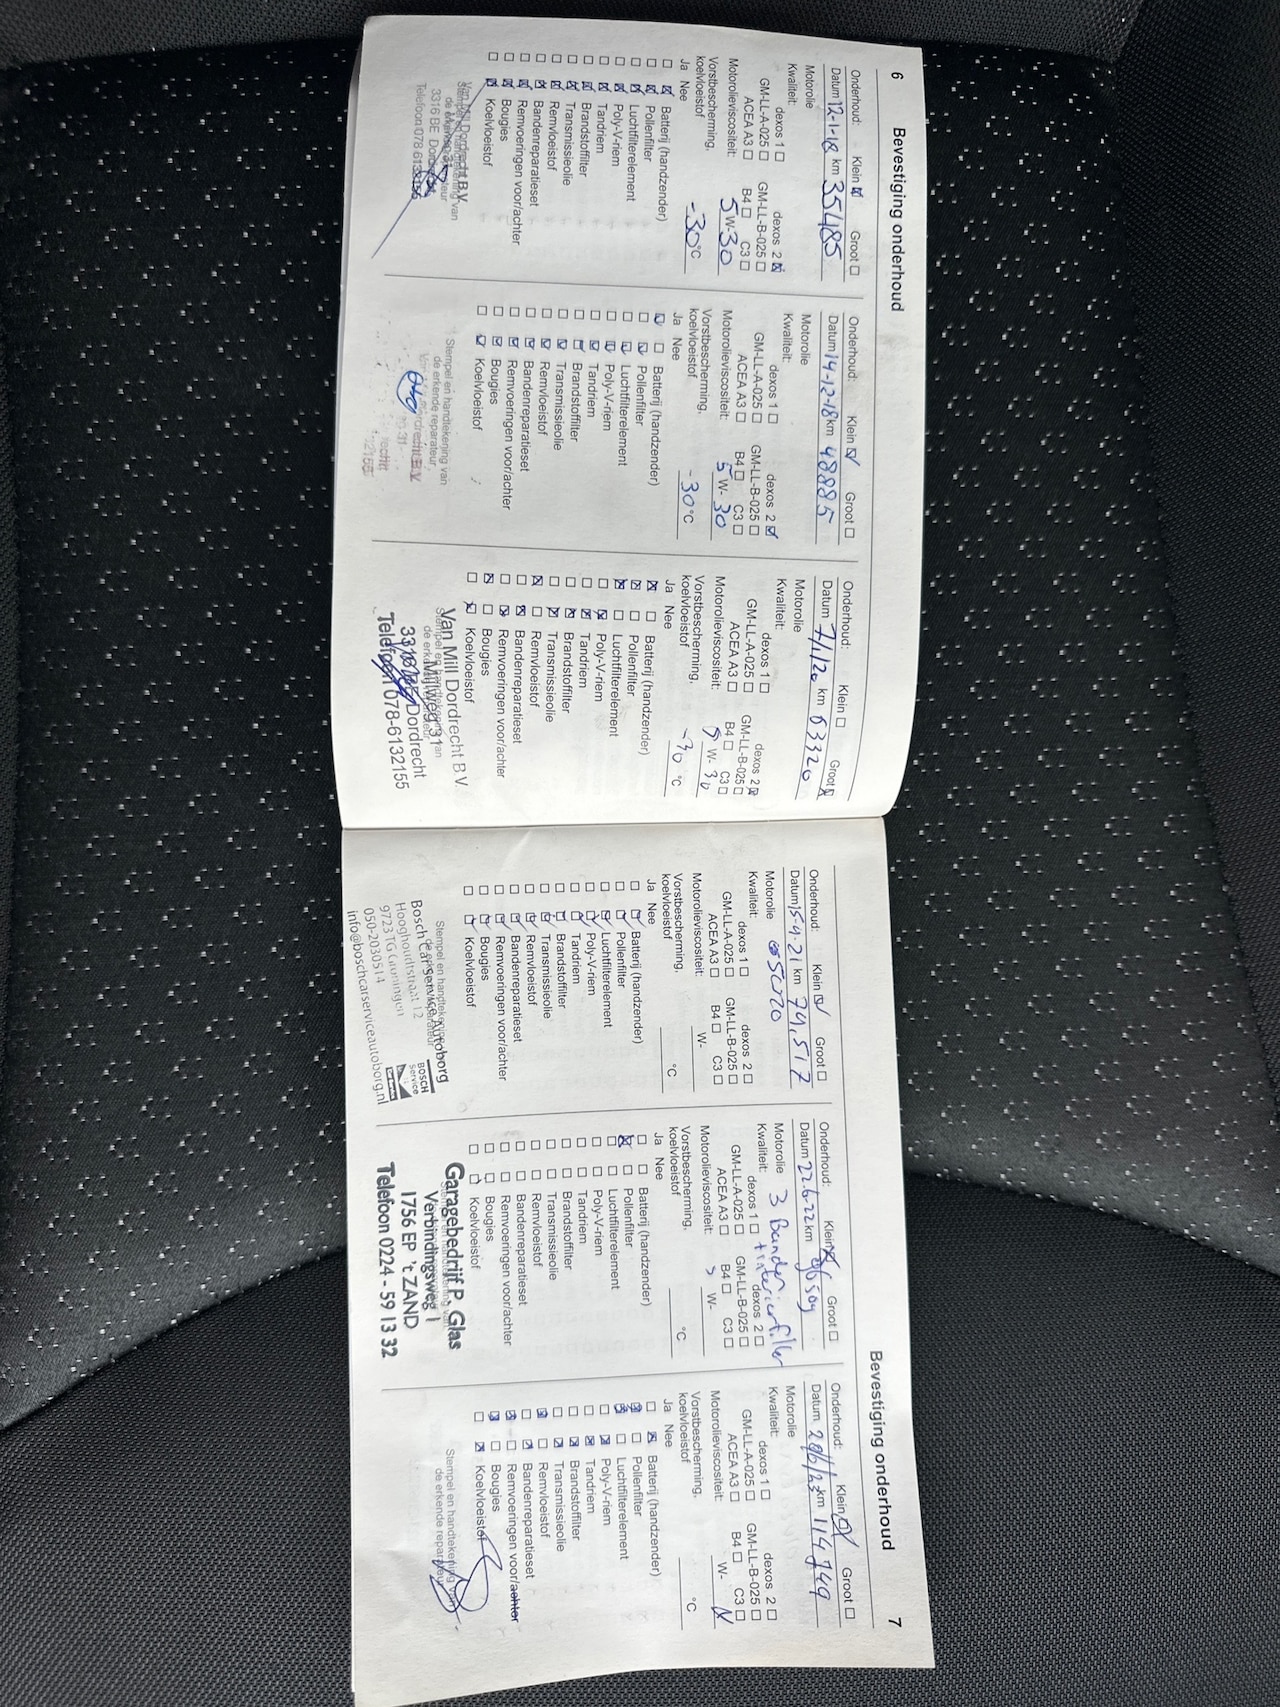 6
Bevestiging onderhoud
Onderhoud: Klein Groot
Datum 12-1-18 km 35485
Motorolie
Kwaliteit:
dexos 1 dexos 2
GM-LL-A-025 GM-LL-B-025
ACEA A3 B4 C3
Motorolieviscositeit: 5 W- 30
Vorstbescherming,
koelvloeistof -30 °C
Ja Nee
Batterij (handzender)
Pollenfilter
Luchtfilterelement
Poly-V-riem
Tandriem
Brandstoffilter
Transmissieolie
Remvloeistof
Bandenreparatieset
Remvoeringen voor/achter
Bougies
Koelvloeistof
Van Mill Dordrecht B.V.
Onderhoud: Klein Groot
Datum 14-12-18 km 48885
Motorolie
Kwaliteit:
dexos 1 dexos 2
GM-LL-A-025 GM-LL-B-025
ACEA A3 B4 C3
Motorolieviscositeit: 5 W- 30
Vorstbescherming,
koelvloeistof -30 °C
Ja Nee
Batterij (handzender)
Pollenfilter
Luchtfilterelement
Poly-V-riem
Tandriem
Brandstoffilter
Transmissieolie
Remvloeistof
Bandenreparatieset
Remvoeringen voor/achter
Bougies
Koelvloeistof
Stempel en handtekening van
de erkende reparateur
Onderhoud: Klein Groot
Datum 7/1/20 km 63320
Motorolie
Kwaliteit:
dexos 1 dexos 2
GM-LL-A-025 GM-LL-B-025
ACEA A3 B4 C3
Motorolieviscositeit: 5 W- 30
Vorstbescherming,
koelvloeistof -30 °C
Ja Nee
Batterij (handzender)
Pollenfilter
Luchtfilterelement
Poly-V-riem
Tandriem
Brandstoffilter
Transmissieolie
Remvloeistof
Bandenreparatieset
Remvoeringen voor/achter
Bougies
Koelvloeistof
Van Mill Dordrecht B.V.
Dordrecht
Telefoon 078-6132155
Bevestiging onderhoud
7
Onderhoud: Klein Groot
Datum 15-4-21 km 79,517
Motorolie
Kwaliteit:
dexos 1 dexos 2
GM-LL-A-025 GM-LL-B-025
ACEA A3 B4 C3
Motorolieviscositeit: W-
Vorstbescherming,
koelvloeistof °C
Ja Nee
Batterij (handzender)
Pollenfilter
Luchtfilterelement
Poly-V-riem
Tandriem
Brandstoffilter
Transmissieolie
Remvloeistof
Bandenreparatieset
Remvoeringen voor/achter
Bougies
Koelvloeistof
Stempel en handtekening
Bosch Car Service Autoborg
Hooghoudtstraat 12
9723 TG Groningen
050-2030514
info@boschcarserviceautoborg.nl
BOSCH
Service
Onderhoud: Klein Groot
Datum 22.6.22 km
Motorolie 3 Banden
+ interierfilter
Kwaliteit:
dexos 1 dexos 2
GM-LL-A-025 GM-LL-B-025
ACEA A3 B4 C3
Motorolieviscositeit: W-
Vorstbescherming,
koelvloeistof °C
Ja Nee
Batterij (handzender)
Pollenfilter
Luchtfilterelement
Poly-V-riem
Tandriem
Brandstoffilter
Transmissieolie
Remvloeistof
Bandenreparatieset
Remvoeringen voor/achter
Bougies
Koelvloeistof
Garagebedrijf P. Glas
Verbindingsweg 1
1756 EP 't ZAND
Telefoon 0224 - 59 13 32
Onderhoud: Klein Groot
Datum km 114749
Motorolie
Kwaliteit:
dexos 1 dexos 2
GM-LL-A-025 GM-LL-B-025
ACEA A3 B4 C3
Motorolieviscositeit: W-
Vorstbescherming,
koelvloeistof °C
Ja Nee
Batterij (handzender)
Pollenfilter
Luchtfilterelement
Poly-V-riem
Tandriem
Brandstoffilter
Transmissieolie
Remvloeistof
Bandenreparatieset
Remvoeringen voor/achter
Bougies
Koelvloeistof
Stempel en handtekening van
de erkende reparateur